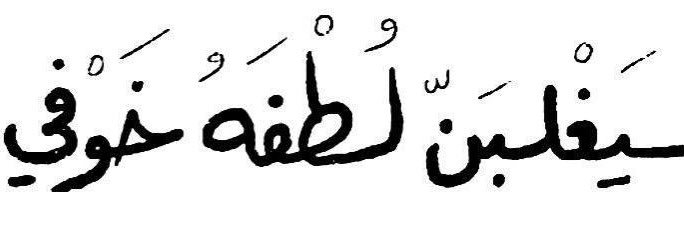 سَيَغْلبَنّ لُطْفَهُ خَوْفي